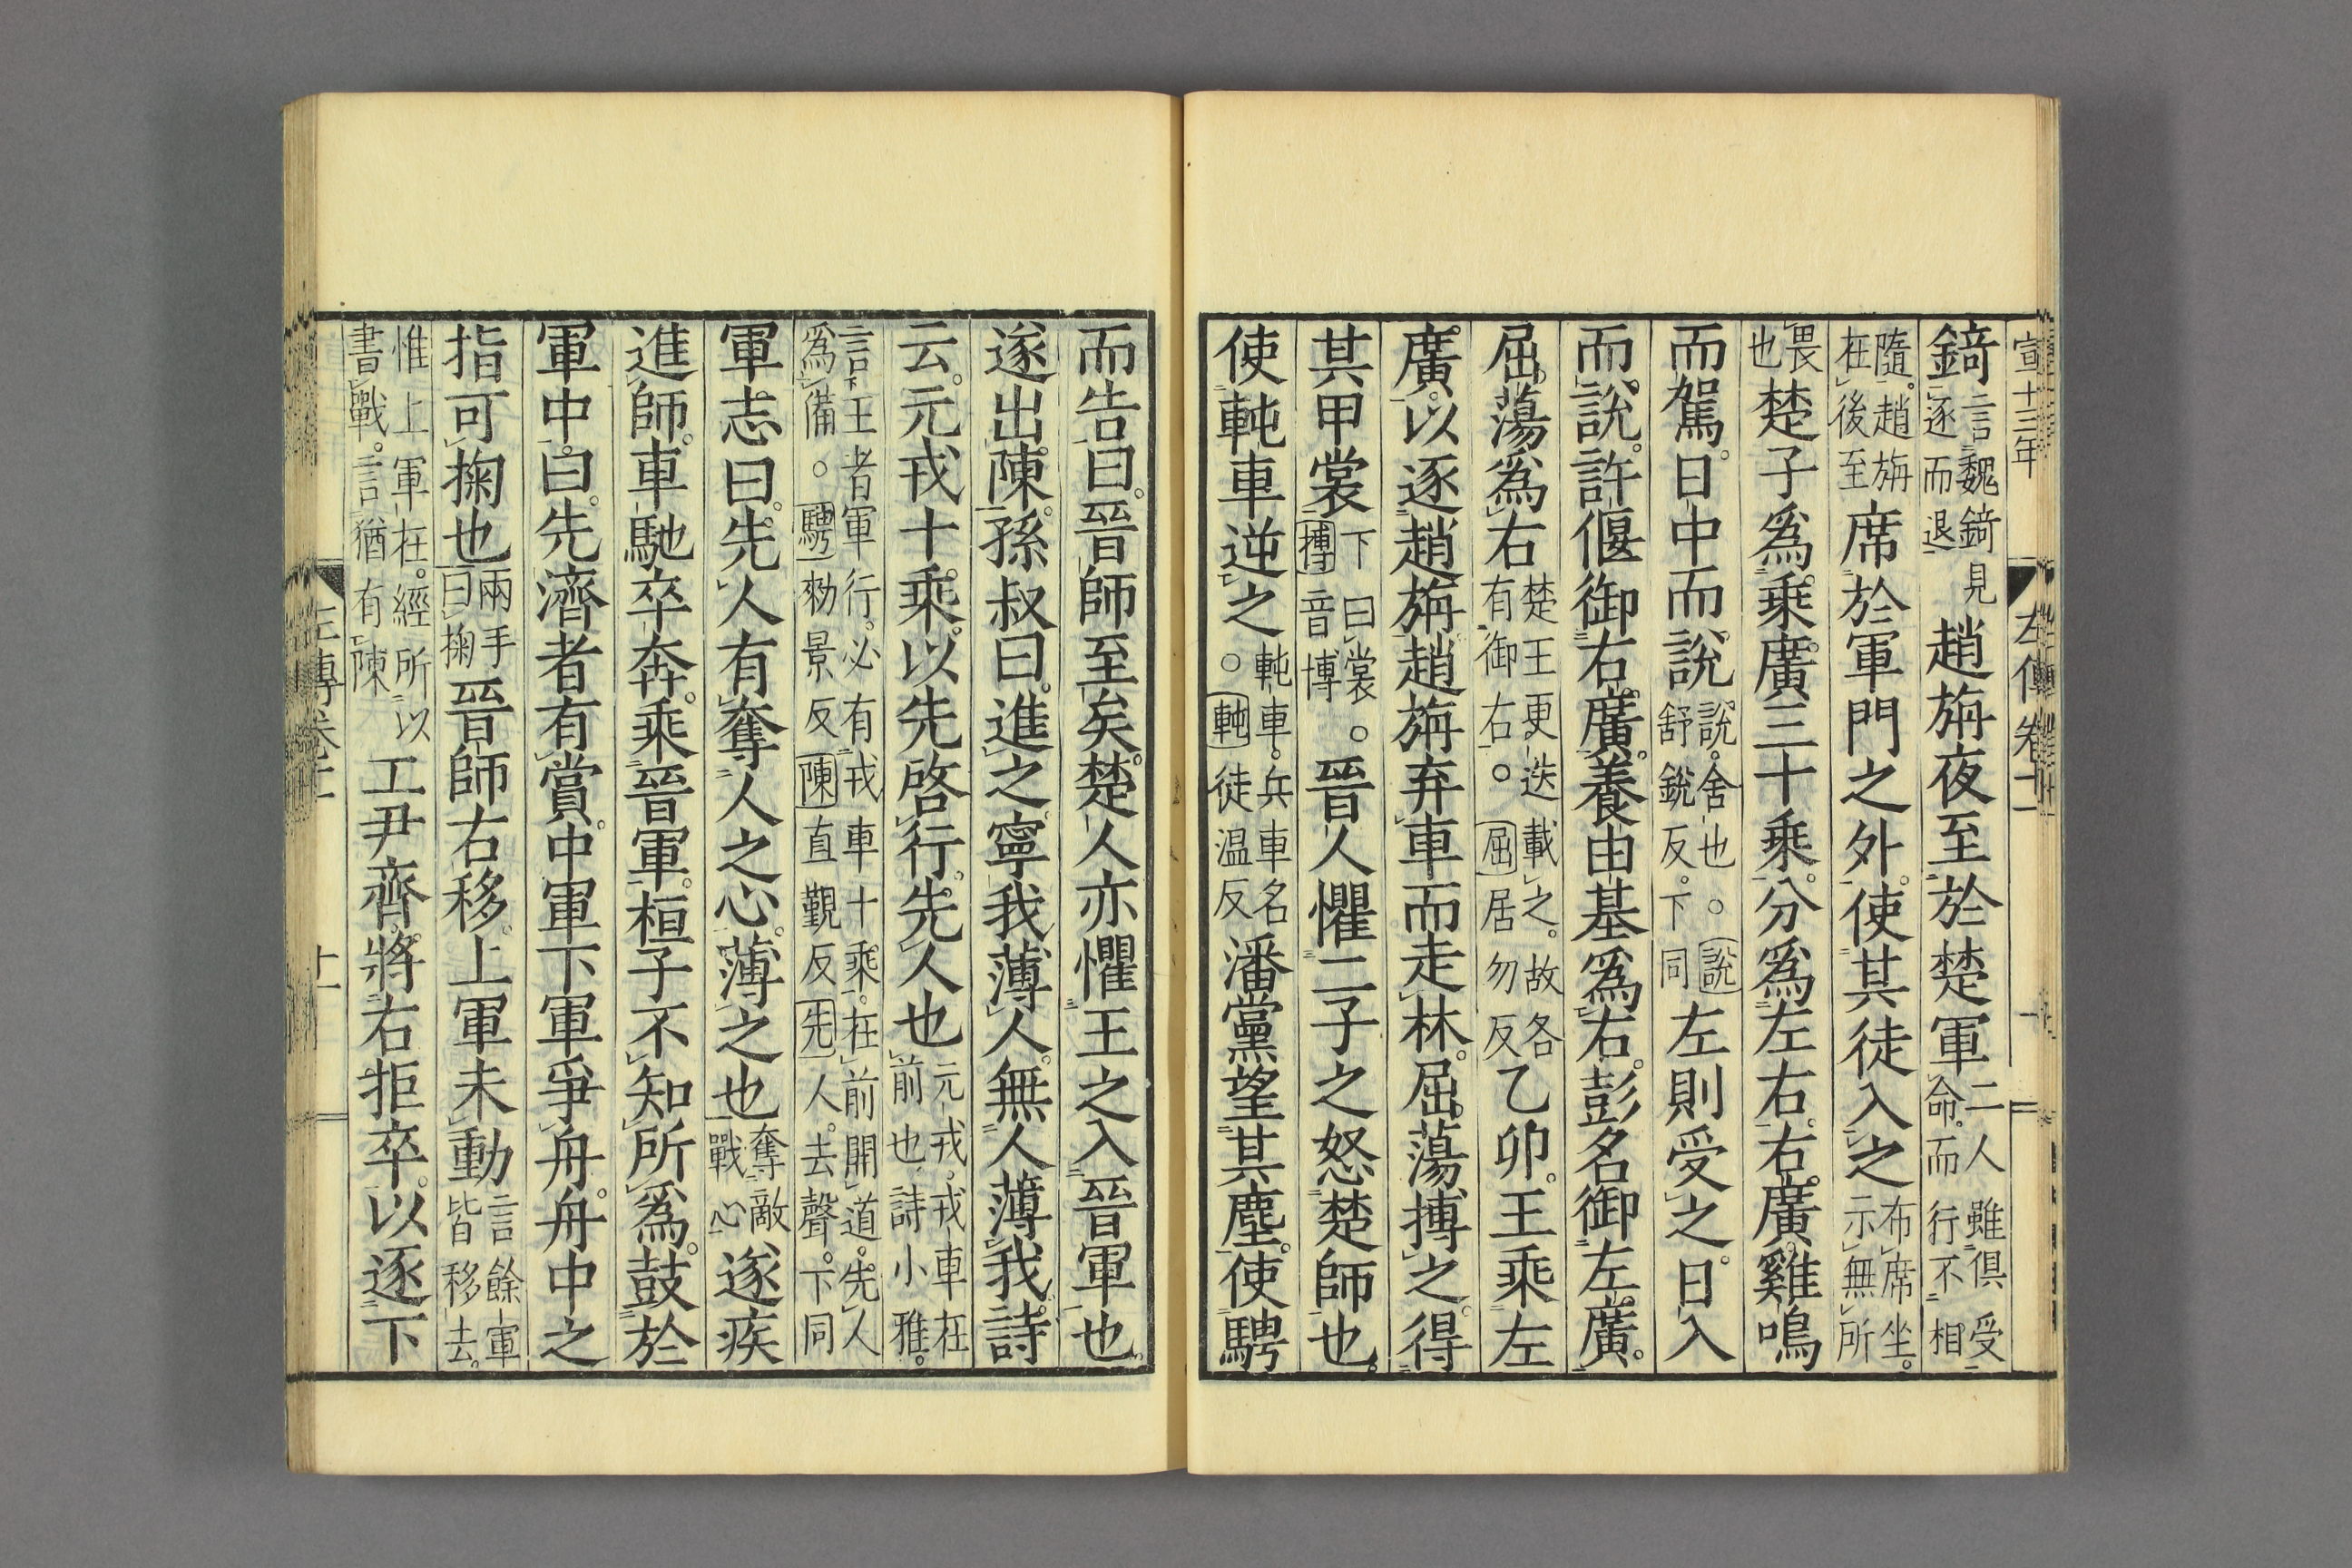 宣十三年
左傳卷十一
錡言魏錡見逐而退趙旃夜至於楚軍二人雖俱受命而行不相
隨趙旃在後至席於軍門之外使其徒入之布席坐示無所
畏也楚子爲乘廣三十乘分爲左右右廣雞鳴
而駕日中而說說舍也○說舒銳反下同左則受之日入
而說許偃御右廣養由基爲右彭名御左廣
屈蕩爲右楚王更迭載之故各有御右○屈居勿反乙卯王乘左
廣以逐趙旃趙旃弃車而走林屈蕩搏之得
其甲裳下曰裳○搏音博晉人懼二子之怒楚師也
使軘車逆之軘車兵車名○軘徒温反潘黨望其塵使騁
而告曰晉師至矣楚人亦懼王之入晉軍也
遂出陳孫叔曰進之寧我薄人無人薄我詩
云元戎十乘以先啓行先人也元戎戎車在前也詩小雅
言王者軍行必有戎車十乘在前開道先人爲備○騁勑景反陳直覲反先人去聲下同
軍志曰先人有奪人之心薄之也奪敵戰心遂疾
進師車馳卒奔乘晉軍桓子不知所爲鼓於
軍中曰先濟者有賞中軍下軍爭舟舟中之
指可掬也兩手曰掬晉師右移上軍未動言餘軍皆移去
惟上軍在經所以書戰言猶有陳工尹齊將右拒卒以逐下
左傳卷十一
十一